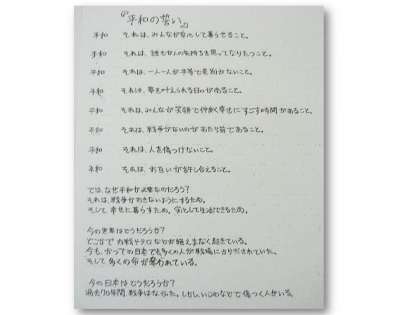 『平和の誓い』
平和 それは、みんなが安心して暮らせること。
平和 それは、誰もが人の気持ちを思ってなりたつこと。
平和 それは、一人一人が平等で差別がないこと。
平和 それは、夢を叶えられる日々があること。
平和 それは、みんなが笑顔で仲良く幸せにすごす時間があること。
平和 それは、戦争がないのがあたり前であること。
平和 それは、人を傷つけないこと。
平和 それは、お互いが許し合えること。
では、なぜ平和が必要なのだろう?
それは、戦争がおきないようにするため。
そして、幸せに暮らすため、安心として生活できるため。
今の世界はどうだろうか?
どこかで内戦やテロなどが絶えまなく起きている。
今も、かつての日本でも多くの人が戦場にかりだされていた。
そして多くの命が奪われている。
今の日本はどうだろうか?
過去70年間、戦争はなかった。しかし、いじめなどで傷つく人がいる。